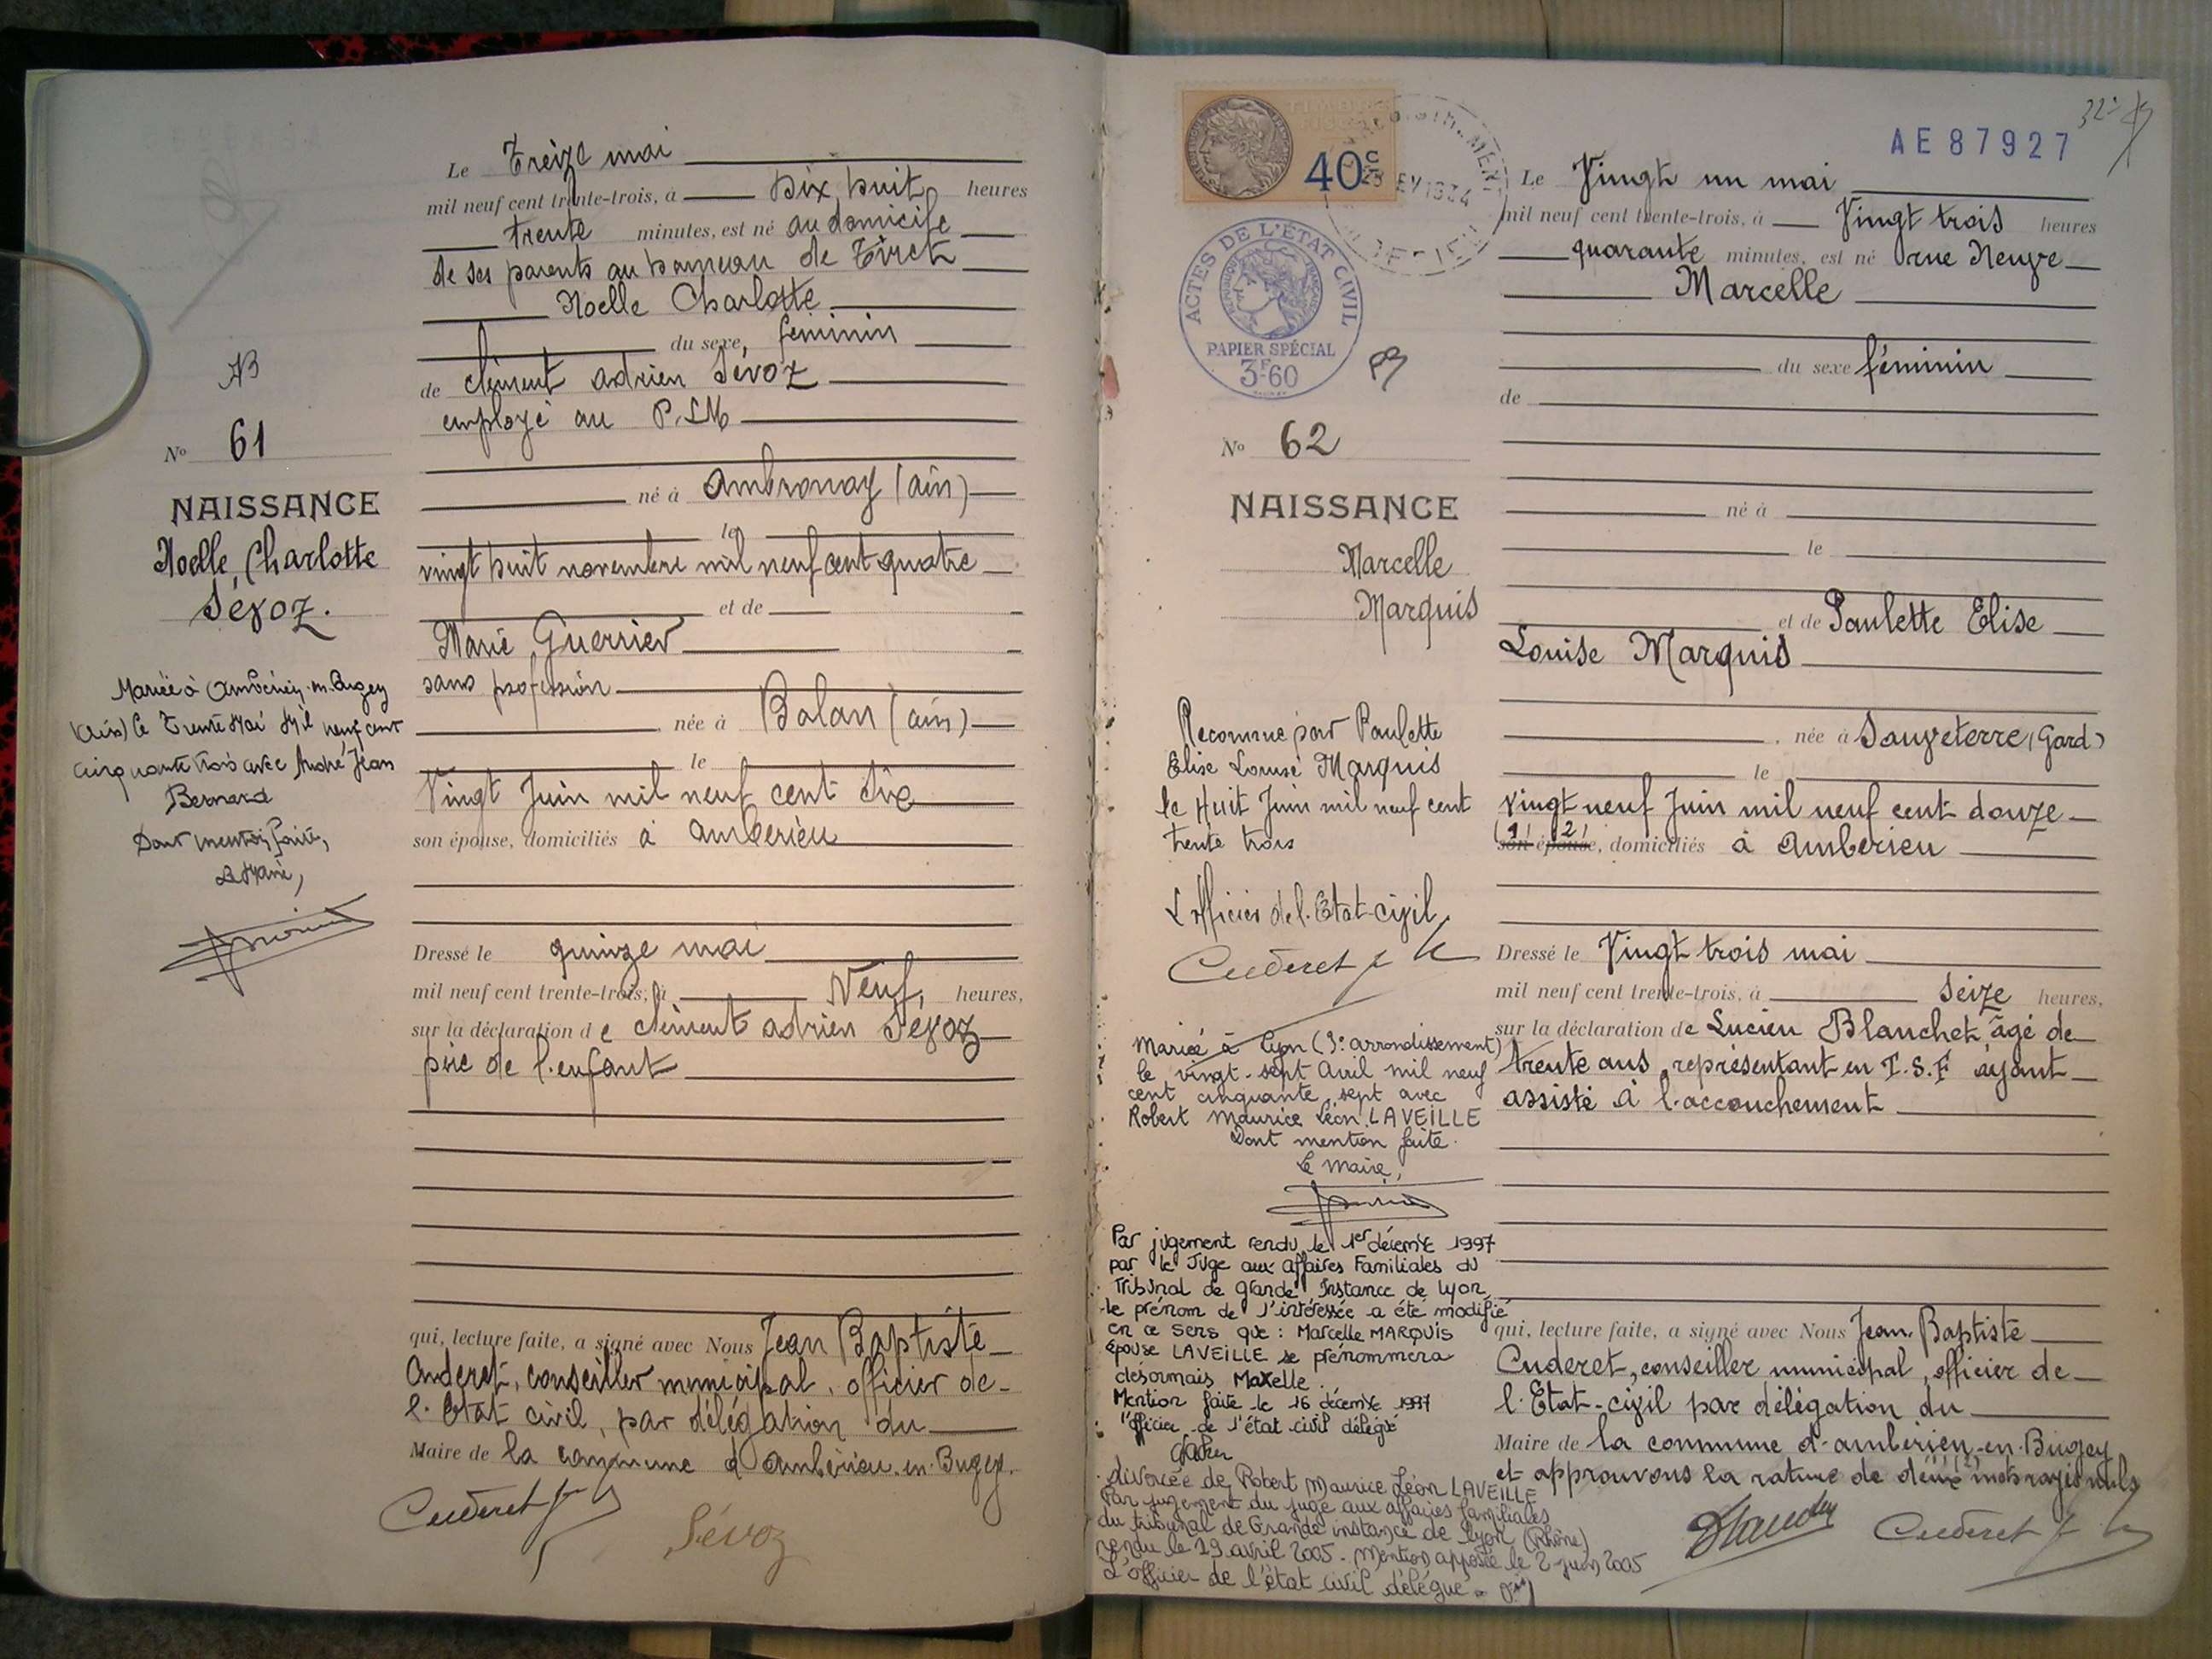 Le Treize mai
mil neuf cent trente-trois, à Dix huit heures
trente minutes, est né au domicile
de ses parents au hameau de Tiret
Noelle Charlotte
du sexe, féminin
de Clément Adrien Sévoz
employé au P.L.M
né à Ambronay (Ain)
le
vingt huit novembre mil neuf cent quatre
et de
Marie Guerrier
sans profession
née à Balan (ain)
le
Vingt Juin mil neuf cent dix
son épouse, domiciliés à Amberieu
Dressé le quinze mai
mil neuf cent trente-trois, à Neuf, heures,
sur la déclaration de Clément Adrien Sévoz
père de l'enfant
qui, lecture faite, a signé avec Nous Jean Baptiste
Cuderet, conseiller municipal, officier de
l'Etat civil, par délégation du
Maire de la commune d'Ambérieu-en-Bugey.
Cuderet
Sévoz
N° 61
NAISSANCE
Noelle, Charlotte
Sévoz.
Mariée à Ambérieu-en-Bugey
(Ain) le Trente Mai Mil neuf cent
cinquante trois avec André Jean
Bernard
Dont mention faite,
Le Maire,
TIMBRE
FISCAL
40c
ACTES DE L'ÉTAT CIVIL
PAPIER SPÉCIAL
3F60
AE87927
32
N° 62
NAISSANCE
Marcelle
Marquis
Reconnue par Paulette
Elise Louise Marquis
le Huit Juin mil neuf cent
trente trois
L'officier de l'Etat-civil,
Cuderet
Mariée à Lyon (3e arrondissement)
le vingt-sept Avril mil neuf
cent cinquante sept avec
Robert Maurice Léon LAVEILLE
Dont mention faite.
Le Maire,
Par jugement rendu le 1er décembre 1997
par le Juge aux affaires Familiales du
Tribunal de Grande Instance de Lyon,
le prénom de l'intéressée a été modifié
en ce sens que : Marcelle MARQUIS
épouse LAVEILLE se prénommera
désormais Maxelle.
Mention faite le 16 décembre 1997
l'officier de l'état civil délégué
divorcée de Robert Maurice Léon LAVEILLE
Par jugement du juge aux affaires familiales
du tribunal de Grande instance de Lyon (Rhône)
rendu le 19 avril 2005. Mention apposée le 2 juin 2005
L'officier de l'état civil délégué
Le Vingt un mai
mil neuf cent trente-trois, à Vingt trois heures
quarante minutes, est né rue Neuve
Marcelle
du sexe féminin
de
né à
le
et de Paulette Elise
Louise Marquis
, née à Sauveterre (Gard)
le
vingt neuf Juin mil neuf cent douze
(1) (2)
son épouse, domiciliés à Amberieu
Dressé le Vingt trois mai
mil neuf cent trente-trois, à Seize heures,
sur la déclaration de Lucien Blanchet, âgé de
trente ans, représentant en T.S.F ayant
assisté à l'accouchement
qui, lecture faite, a signé avec Nous Jean-Baptiste
Cuderet, conseiller municipal, officier de
l'Etat-civil par délégation du
Maire de la commune d'Amberieu-en-Bugey
et approuvons la rature de deux (2) mots rayés nuls
Cuderet